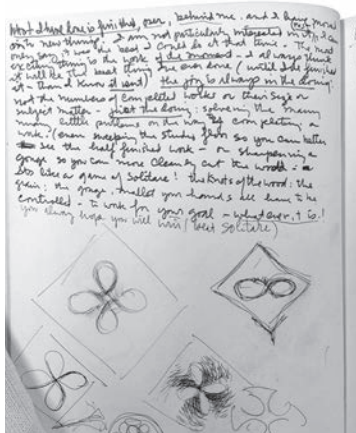 What I have done is finished, over, behind me. and I have moved
on to new things. I am not particularly interested in it, I can
even say, it was the best I could do at that time. The most
exciting thing is the work of the moment and I always think
it will be the best thing I have ever done (until I've finished
it - then I know it isn't) the joy is always in the doing.
not the numbers of completed works or their size or
subject matter - just the doing: solving the many
little problems on the way of completing a
work: (even sweeping the studio floor so you can better
see the half finished work - or sharpening a
gouge so you can more cleanly cut the wood - 
its like a game of solitaire! the knots of the wood: the
grain: the gouge, mallet your hands all have to be
controlled - to work for your goal - whatever it is!
you always hope you will win (beat solitaire)